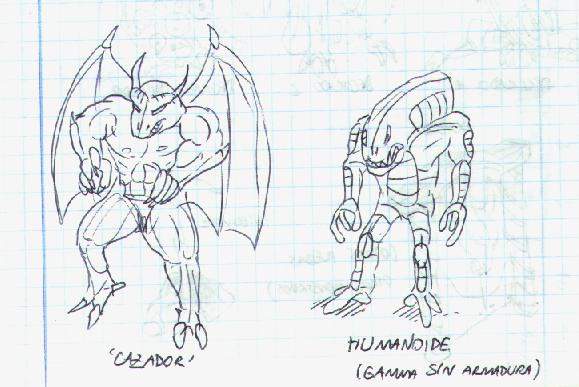 'CAZADOR'
HUMANOIDE
(GAMMA SIN ARMADURA)